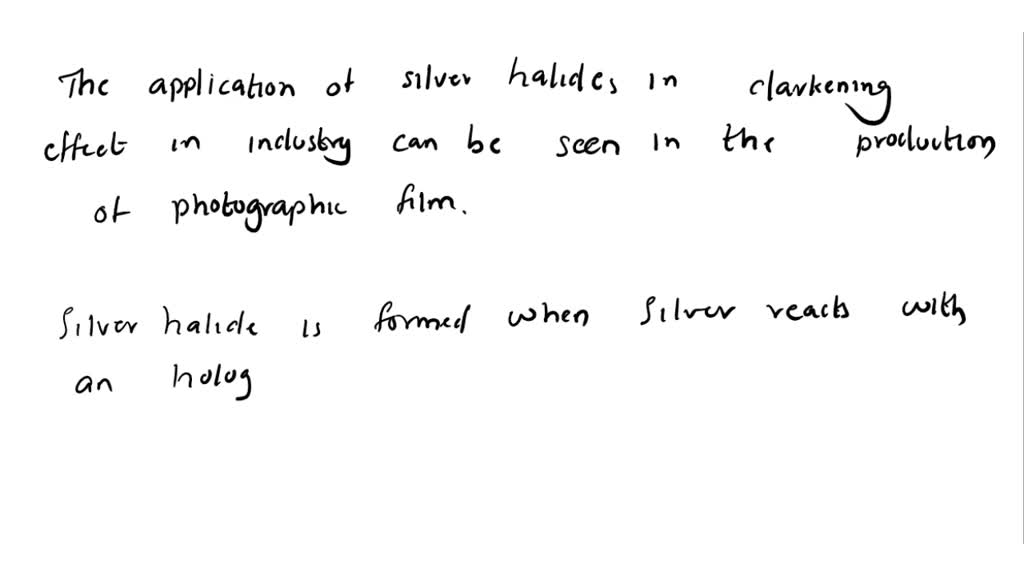 The application of silver halides in darkening
effect in industry can be seen in the production
of photographic film.
Silver halide is formed when silver reacts with
an holog